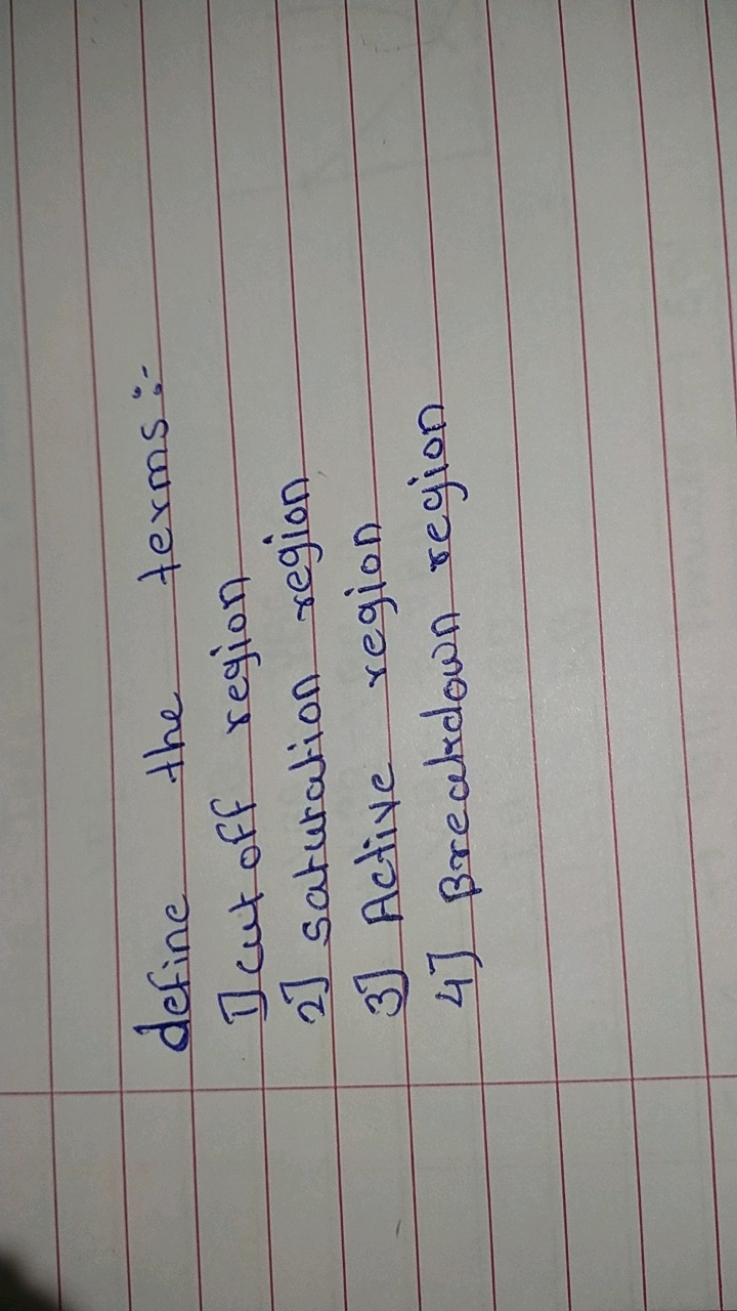 define the terms:-
1] cut off region
2] saturation region
3] Active region
4] Breakdown region